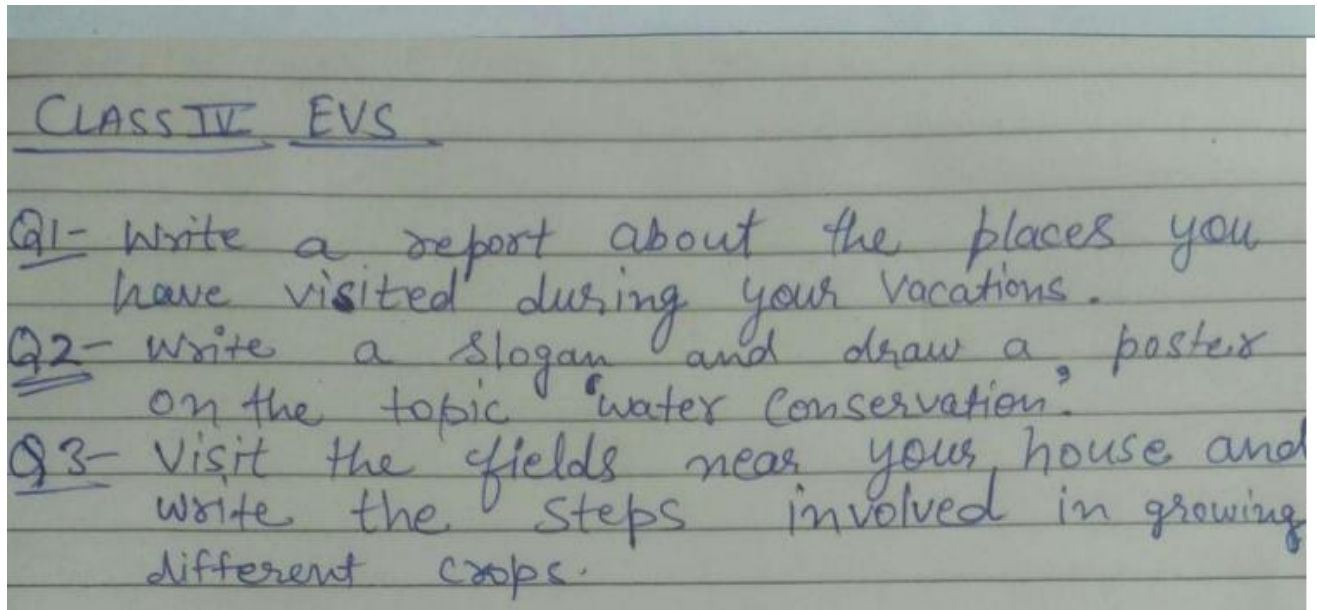 CLASS IV EVS
Q1- Write a report about the places you
have visited during your vacations.
Q2- Write a slogan and draw a poster
on the topic 'water Conservation'.
Q3- Visit the fields near your house and
write the steps involved in growing
different crops.